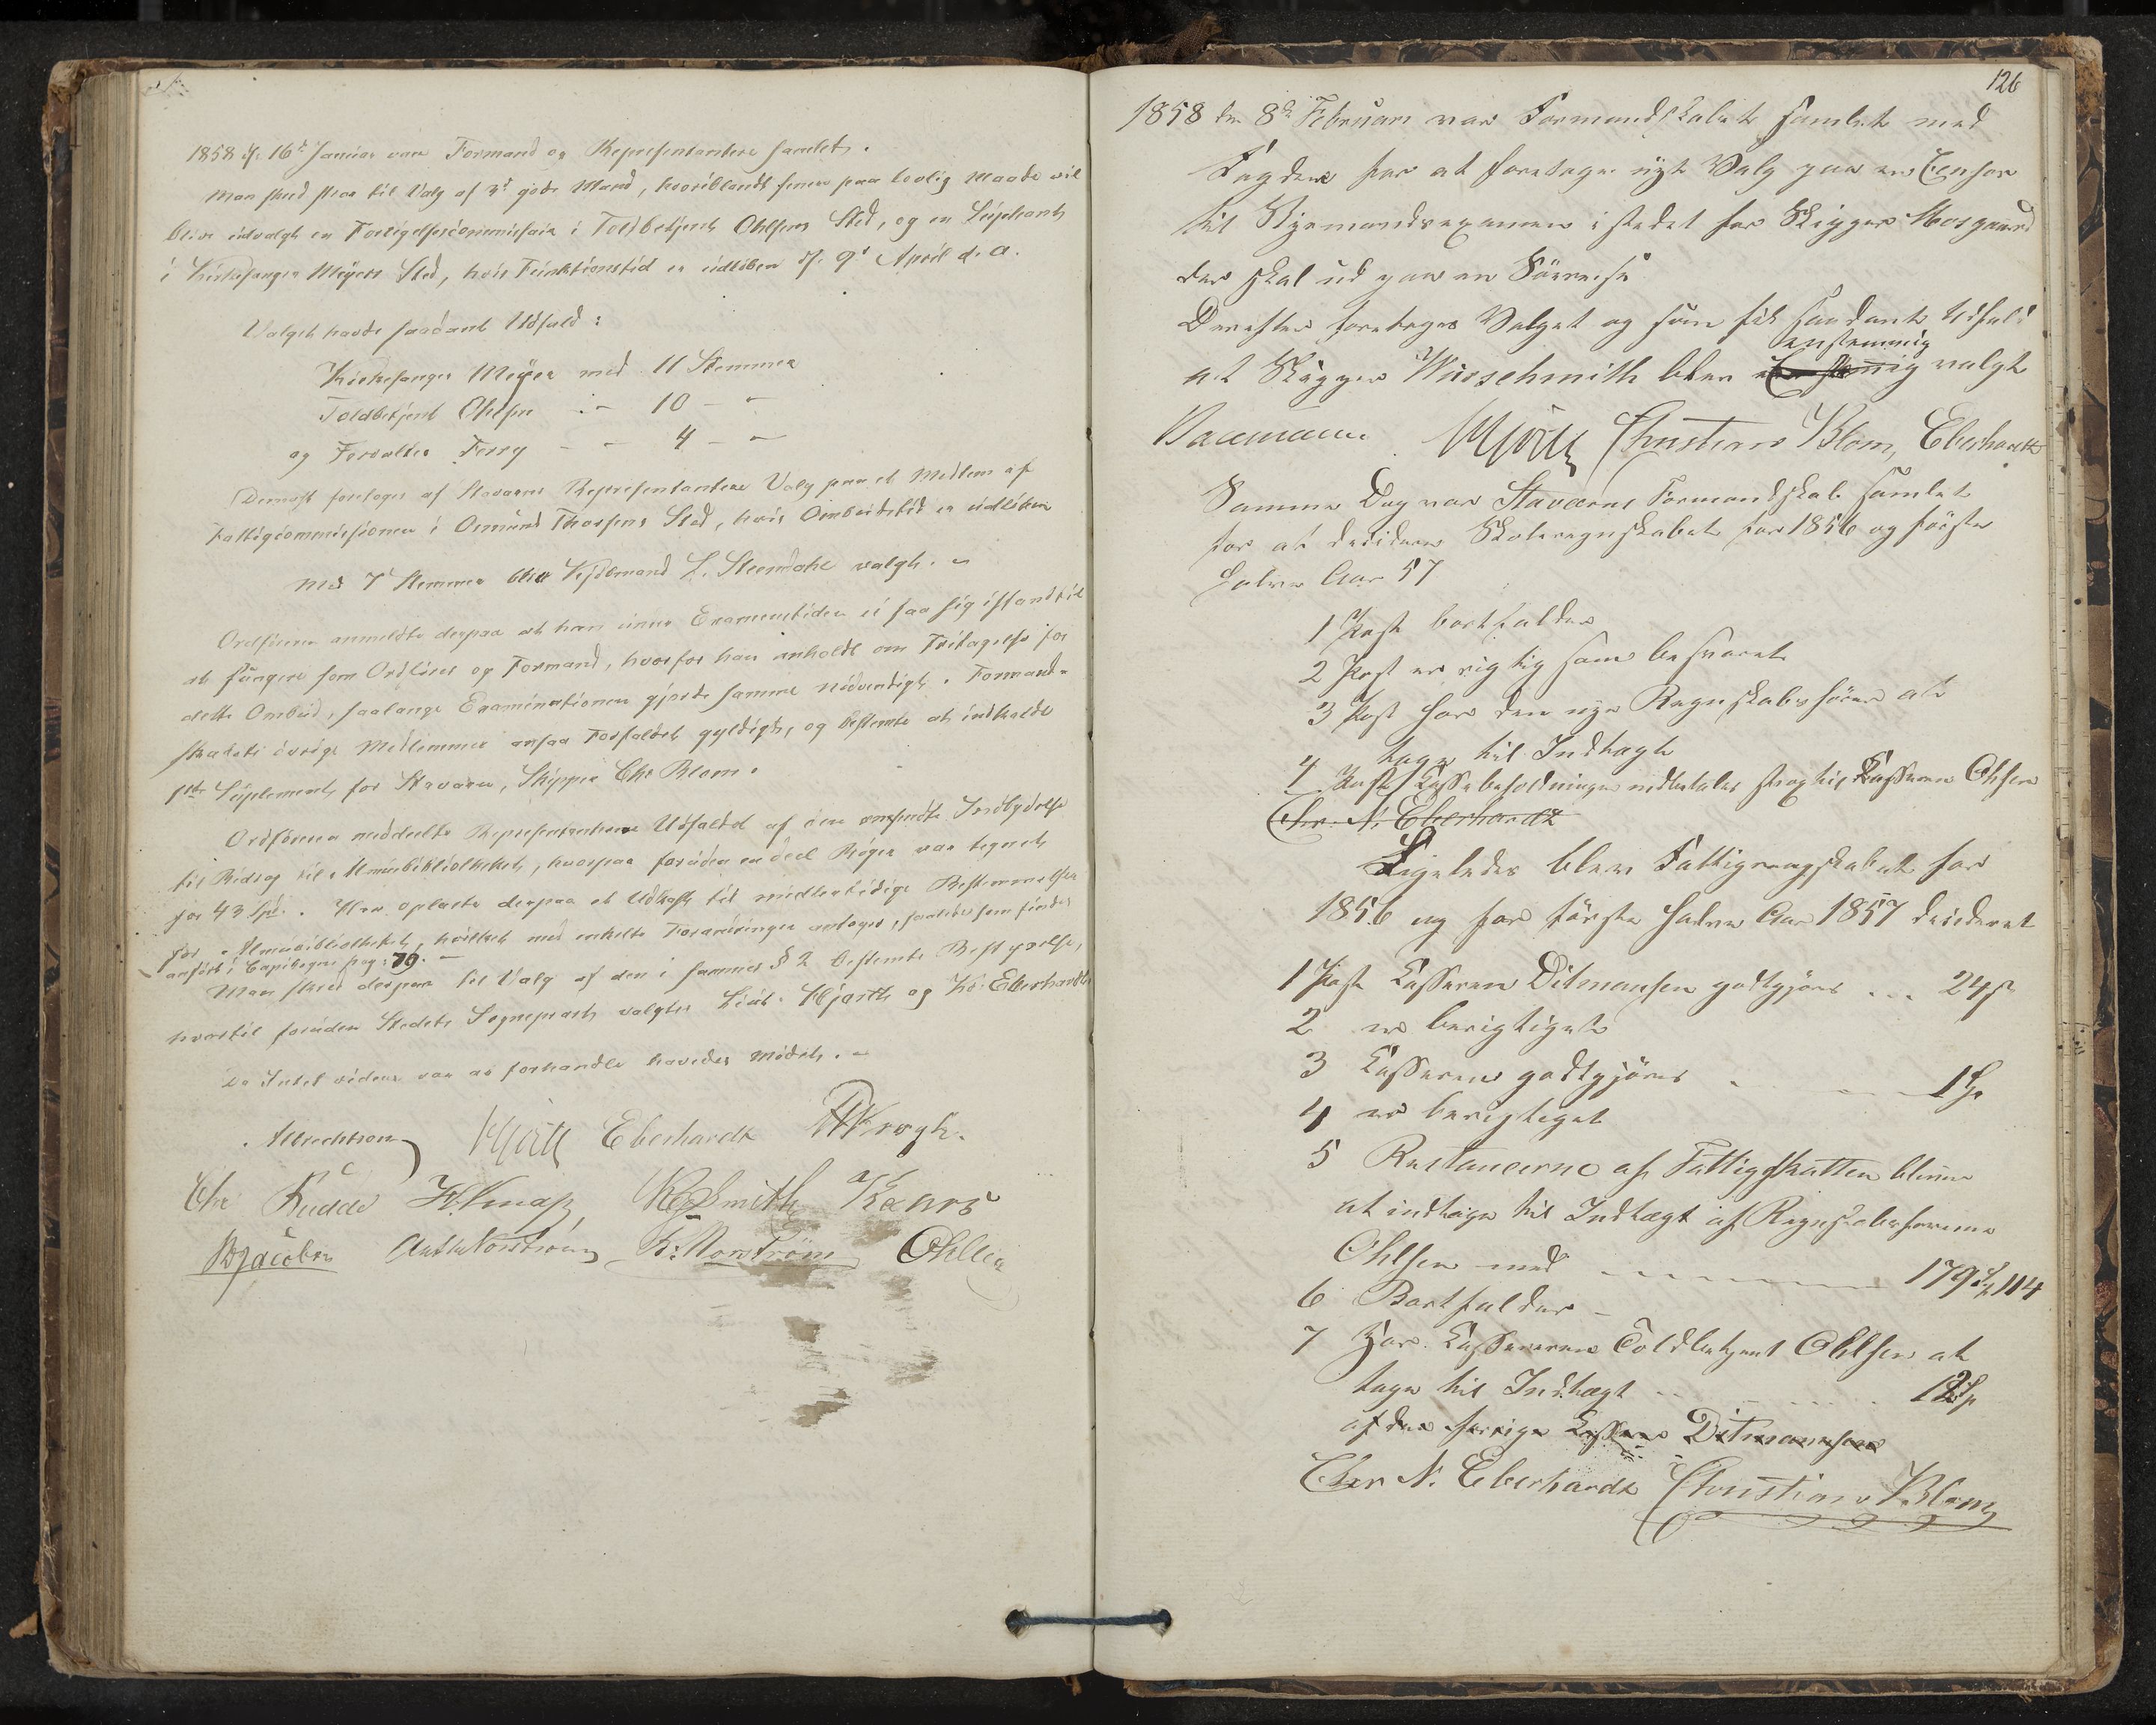 1858 d. 16de Januar var Formand og Repræsentantere samlet.
Man skred strax til Valg af 3de gode Mænd, hvoriblandt senere paa lovlig Maade vil
blive udvalgt en Forligelsescommissair i Toldbetjent Ohlsens Sted, og en Supleant
i Kirkesanger Meyers Sted, hvis Funktionstid er udløben d. 9de April d. A.
Valget havde saadant Udfald:
Kirkesanger Meyer med 11 Stemmer
Toldbetjent Ohlsen - 10 -
og Forvalter Ferry - 4 -
Dernæst foretoges af Staværns Repræsentantere Valg paa et Medlem af
Fattigcommissionen i Omund Thorsens Sted, hvis Ombudstid er udløben
Med 7 Stemmer blev L. Steendahl valgt.
Ordføreren anmeldte derpaa at han under Examenstiden ei saa sig istand til
at fungere som Ordfører og Formand, hvorfor han anholdt om Fritagelse for
dette Ombud, saalænge Examinationen gjorde samme nødvendigt. Formand-
skabets øvrige Medlemmer ansaa Forfaldet gyldigt, og bestemte at indkalde
1ste Suplement for Staværn, Skipper Chr Blom.
Ordføreren meddeelte Repræsentanterne Udfaldet af den omsendte Indbydelse
til Bidrag til Almuebibliotheket, hvorpaa foruden en deel Bøger var tegnet
for 43 Spd. Han oplæste derpaa et Udkast til midlertidige Bestemmelser
for Almuebibliotheket, hvilket med enkelte Forandringer antoges, saaledes som findes
anført i Copibogens pag: 79.
Man skred derpaa til Valg af den i sammes § 2 bestemte Bestyrelse,
hvortil foruden Stedets Sognepræst valgtes Lieut. Hjorth og Kr. Eberhardt
Da Intet videre var at forhandle hævedes Mødet.
Albrechtson Hjorth Eberhardt Krogh.
Chr Budde H. Knap Smith
Jacobsen Norstrøm Norstrøm Ohlsen
126
1858 den 8de Februari var Formandskabet samlet med
Fogden for at foretage nyt Valg paa en Censor
til Styrmandsexamen i stedet for Skipper Mosgaard
der skal ud paa en Søereise
Derefter foretoges Valget og som fik saadant Udfald
enstemmig
at Skipper Wurschmith blev valgt
Baumann Hjorth Christian Blom, Eberhardt
Samme Dag var Staværns Formandskab samlet
for at decidere Skoleregnskabet for 1856 og første
halve Aar 57
1 Post bortfalder
2 Post er rigtig som besvaret
3 Post har den nye Regnskabsfører at
tage til Indtægt
4 Post Kassebeholdningen indbetales strax til Kassereren Ohlsen
Chr. N. Eberhardt
Ligeledes blev Fattigregnskabet for
1856 og for første halve Aar 1857 decideret
1 Post Kassereren Ditmansen godtgjøres ... 24 s
2 er berigtiget
3 Kassereren godtgjøres - 1 Sp
4 er berigtiget
5 Restancerne af Fattigskatten bliver
at indtage til Indtægt af Regnskabsføreren
Ohlsen med 179 Sp 114
6 Bortfalder -
7 Har Kassereren Toldbetjent Ohlsen at
tage til Indtægt 12 Sp
af den forrige Kasserer Ditmansen
Chr N. Eberhardt Christian Blom